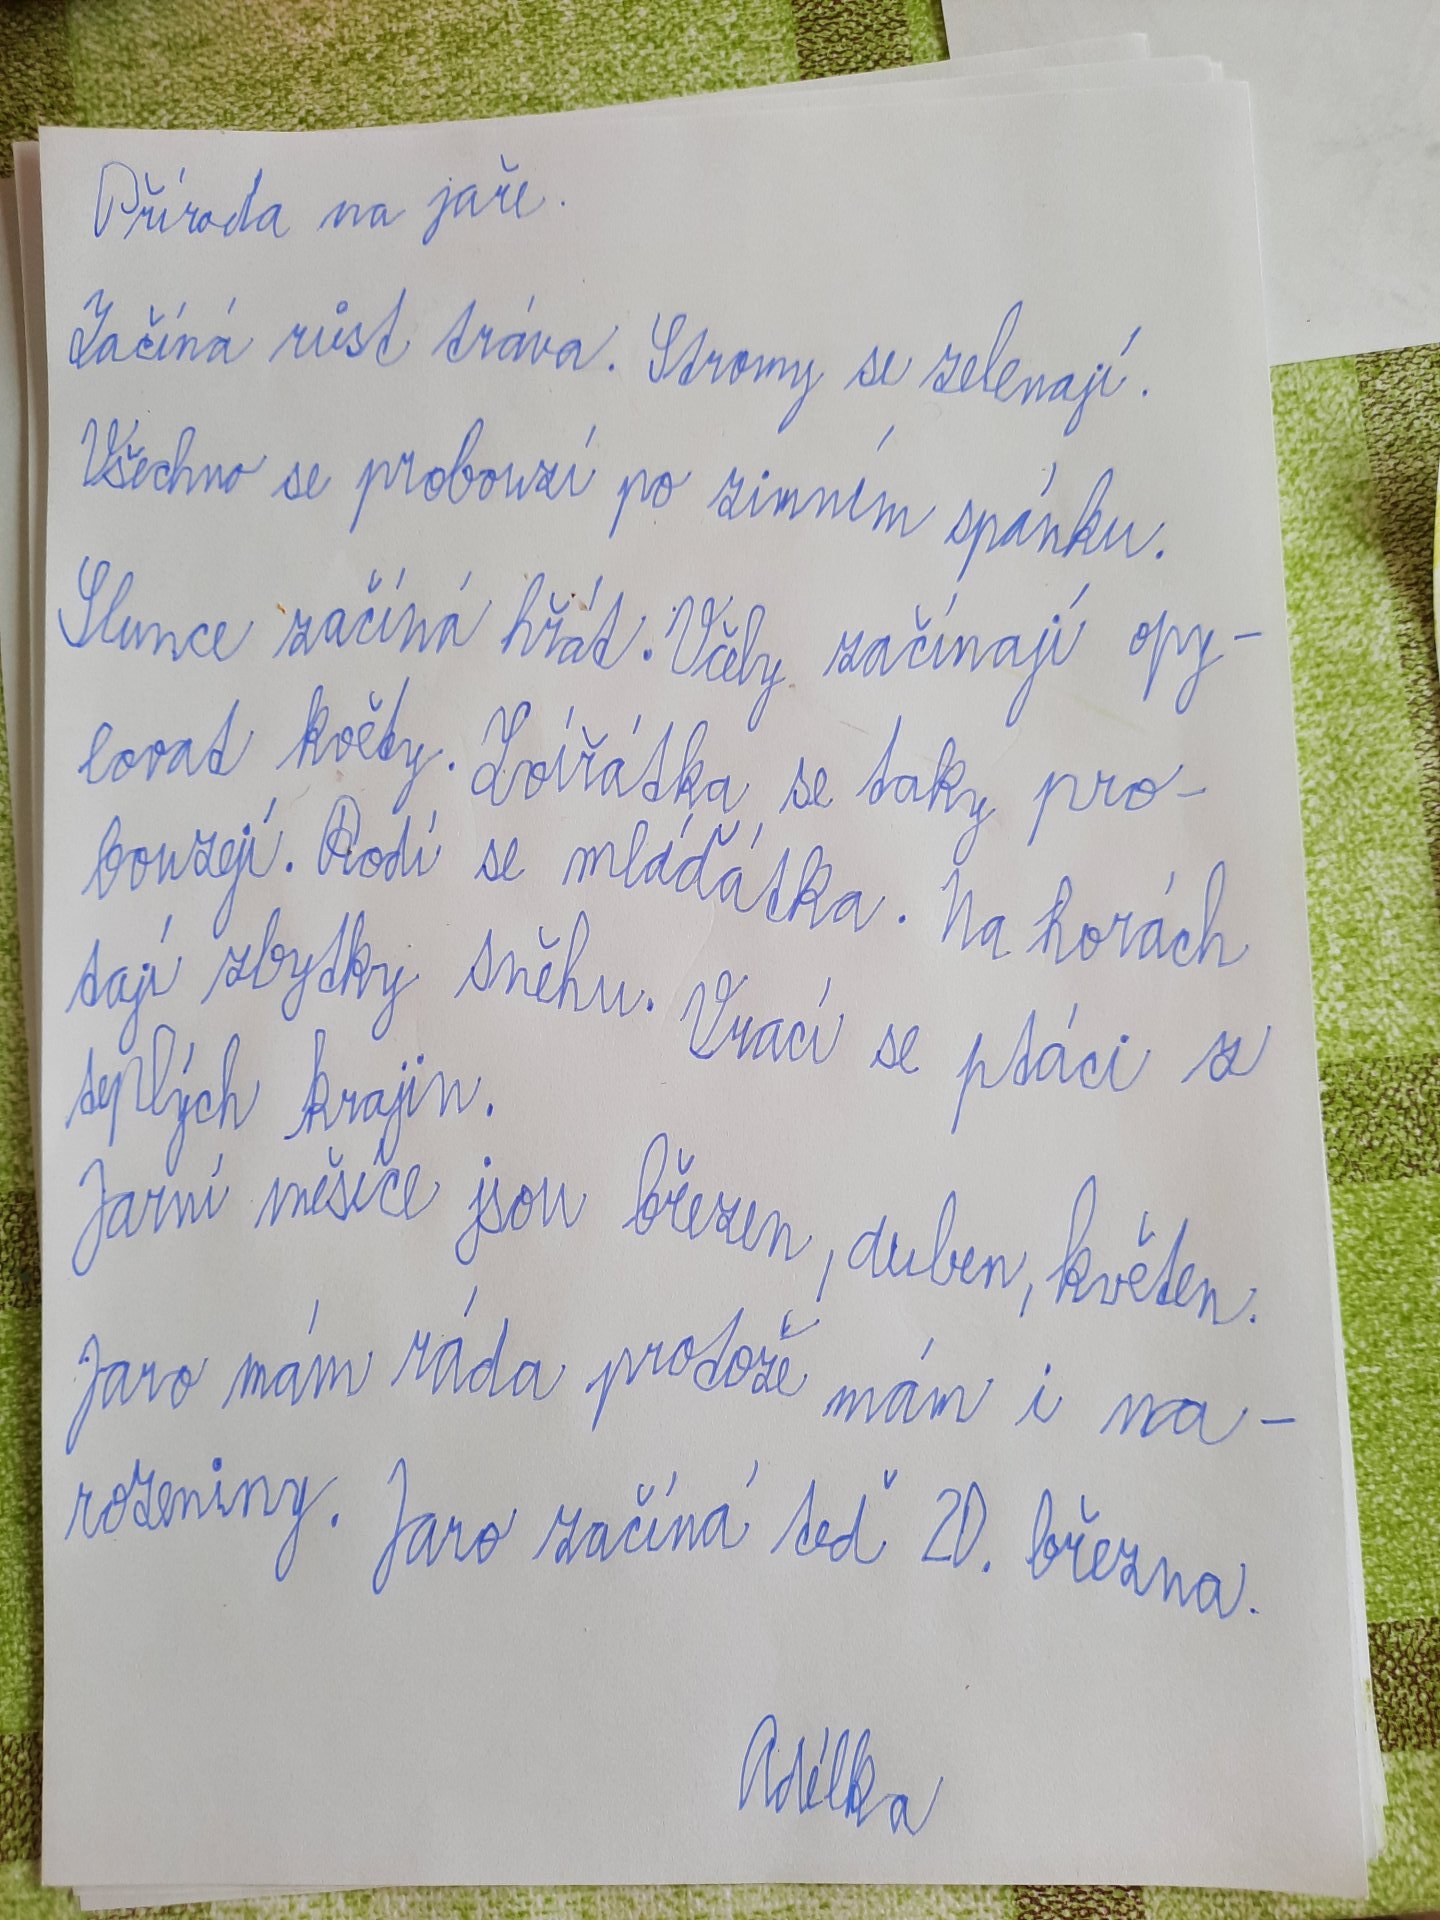 Příroda na jaře.
Začíná růst tráva. Stromy se zelenají.
Všechno se probouzí po zimním spánku.
Slunce začíná hřát. Včely začínají opy-
lovat květy. Zvířátka se taky pro-
bouzejí. Rodí se mláďátka. Na horách
tají zbytky sněhu. Vrací se ptáci z
teplých krajin.
Jarní měsíce jsou březen, duben, květen.
Jaro mám ráda protože mám i na-
rozeniny. Jaro začíná teď 20. března.
Adélka